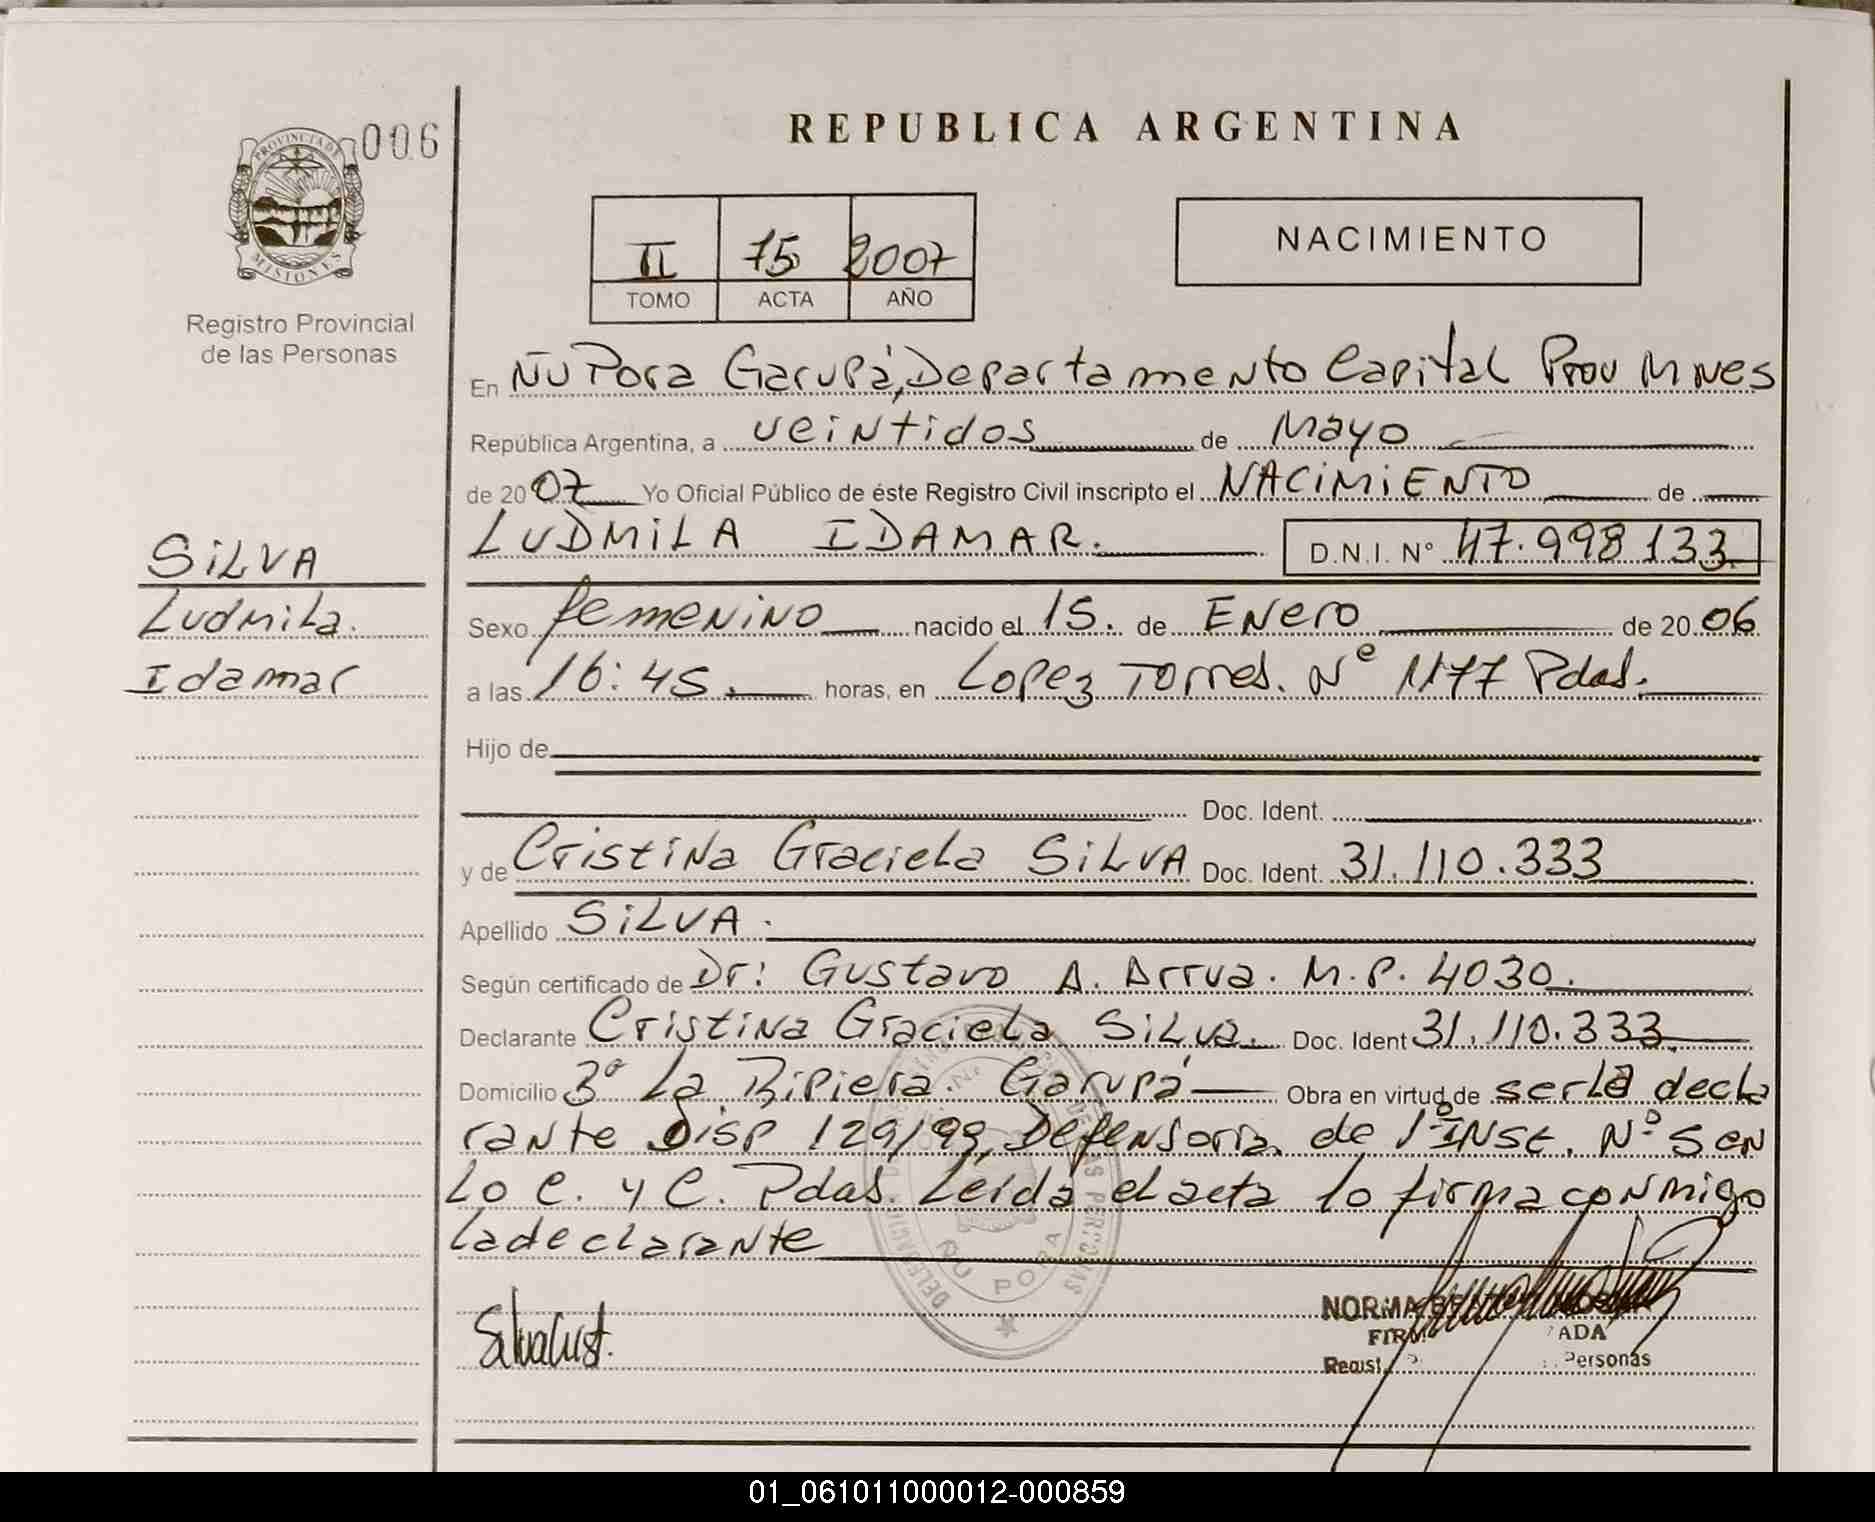 006
PROVINCIA DE
MISIONES
Registro Provincial
de las Personas
REPUBLICA ARGENTINA
II 75 2007
TOMO ACTA AÑO
NACIMIENTO
En Ñu Pora Garupá, Departamento Capital Prov Mnes
República Argentina, a veintidos de Mayo
de 2007 Yo Oficial Público de éste Registro Civil inscripto el NACIMIENTO de
LUDMILA IDAMAR. D.N.I. N° 47.998.133
SILVA
Ludmila.
Idamar
Sexo femenino nacido el 15. de Enero de 2006
a las 16:45. horas, en Lopez Torres. Nº 1177 Pdas.
Hijo de
Doc. Ident.
y de Cristina Graciela SILVA Doc. Ident. 31.110.333
Apellido SILVA.
Según certificado de Dr: Gustavo A. Arrua. M.P. 4030.
Declarante Cristina Graciela Silva. Doc. Ident 31.110.333
Domicilio Bº La Ripiera. Garupá Obra en virtud de ser la decla
rante Disp 129/99, Defensoria de 1º Inst. Nº 5 en
Lo C. y C. Pdas. Leída el acta lo firma conmigo
la declarante
DELEGACION
DE LAS PERSONAS
ÑU PORA
Silva Crist.
NORMA
FIR ADA
Regist Personas
01_061011000012-000859